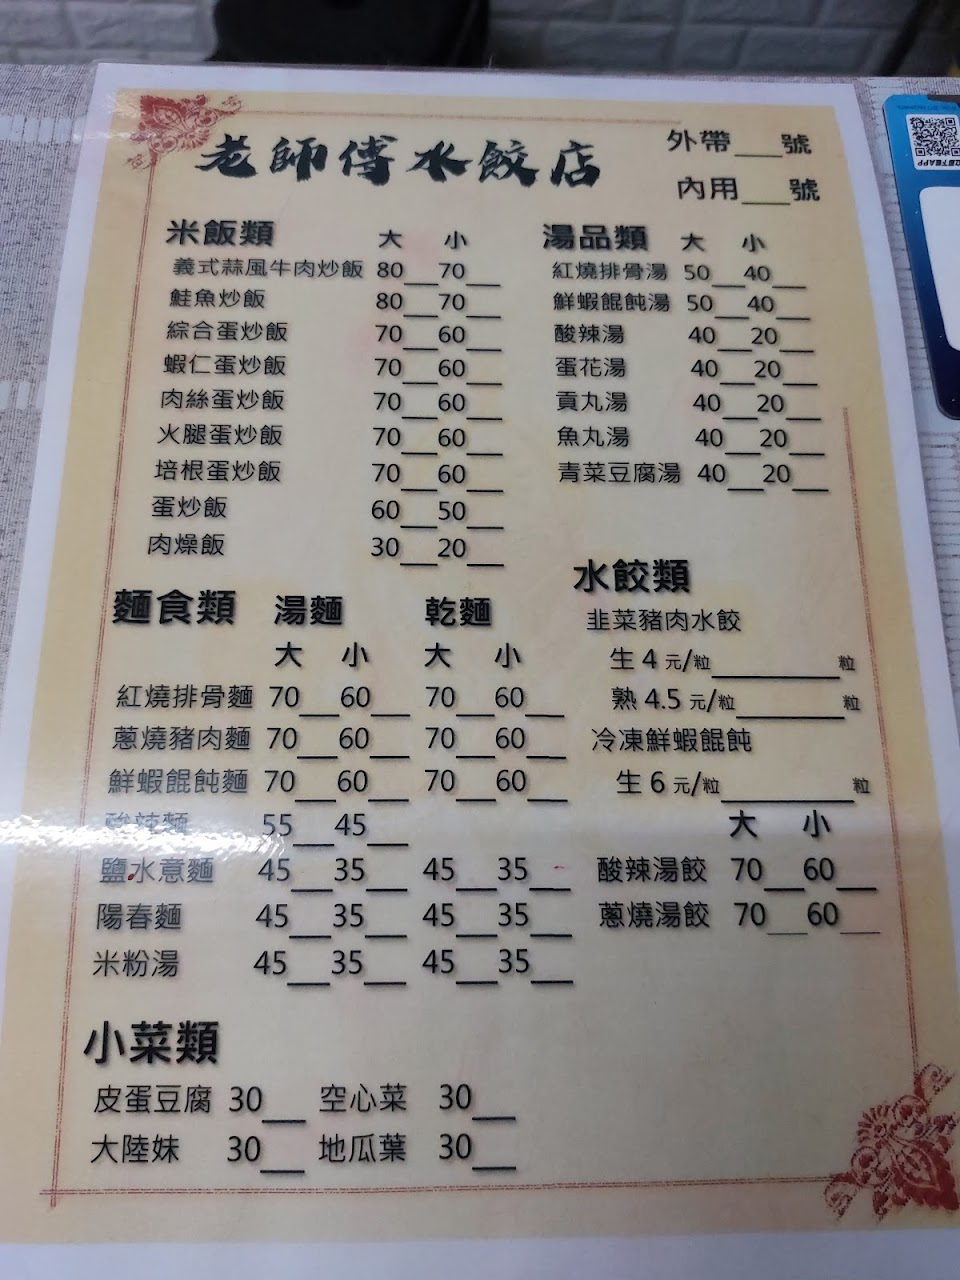 老師傅水餃店
外帶___號
內用___號
米飯類 大 小
義式蒜風牛肉炒飯 80__70__
鮭魚炒飯 80__70__
綜合蛋炒飯 70__60__
蝦仁蛋炒飯 70__60__
肉絲蛋炒飯 70__60__
火腿蛋炒飯 70__60__
培根蛋炒飯 70__60__
蛋炒飯 60__50__
肉燥飯 30__20__
湯品類 大 小
紅燒排骨湯 50__40__
鮮蝦餛飩湯 50__40__
酸辣湯 40__20__
蛋花湯 40__20__
貢丸湯 40__20__
魚丸湯 40__20__
青菜豆腐湯 40__20__
麵食類 湯麵 乾麵
大 小 大 小
紅燒排骨麵 70__60__ 70__60__
蔥燒豬肉麵 70__60__ 70__60__
鮮蝦餛飩麵 70__60__ 70__60__
酸辣麵 55__45__
鹽水意麵 45__35__ 45__35__
陽春麵 45__35__ 45__35__
米粉湯 45__35__ 45__35__
水餃類
韭菜豬肉水餃
生 4 元/粒________粒
熟 4.5 元/粒________粒
冷凍鮮蝦餛飩
生 6 元/粒________粒
大 小
酸辣湯餃 70__60__
蔥燒湯餃 70__60__
小菜類
皮蛋豆腐 30__ 空心菜 30__
大陸妹 30__ 地瓜葉 30__